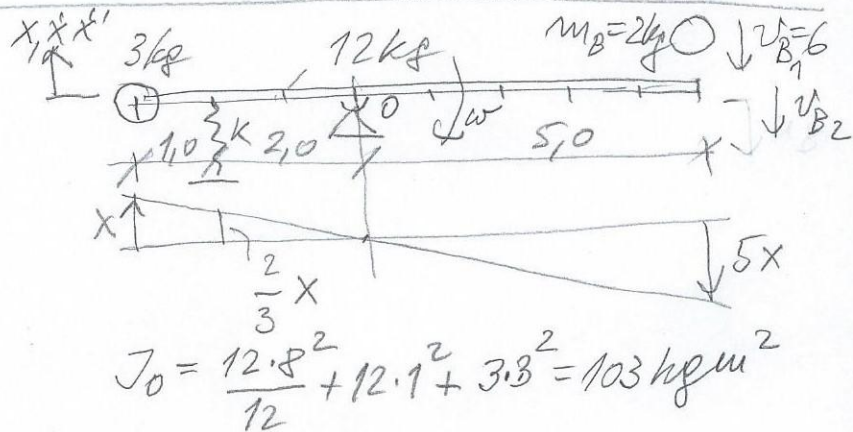 x, x', x''
3kg 12kg m_B=2kg v_B1=6
O ω v_B2
1,0 k 2,0 5,0
x 2/3 x 5x
J_O = 12·8²/12 + 12·1² + 3·3² = 103 kgm²